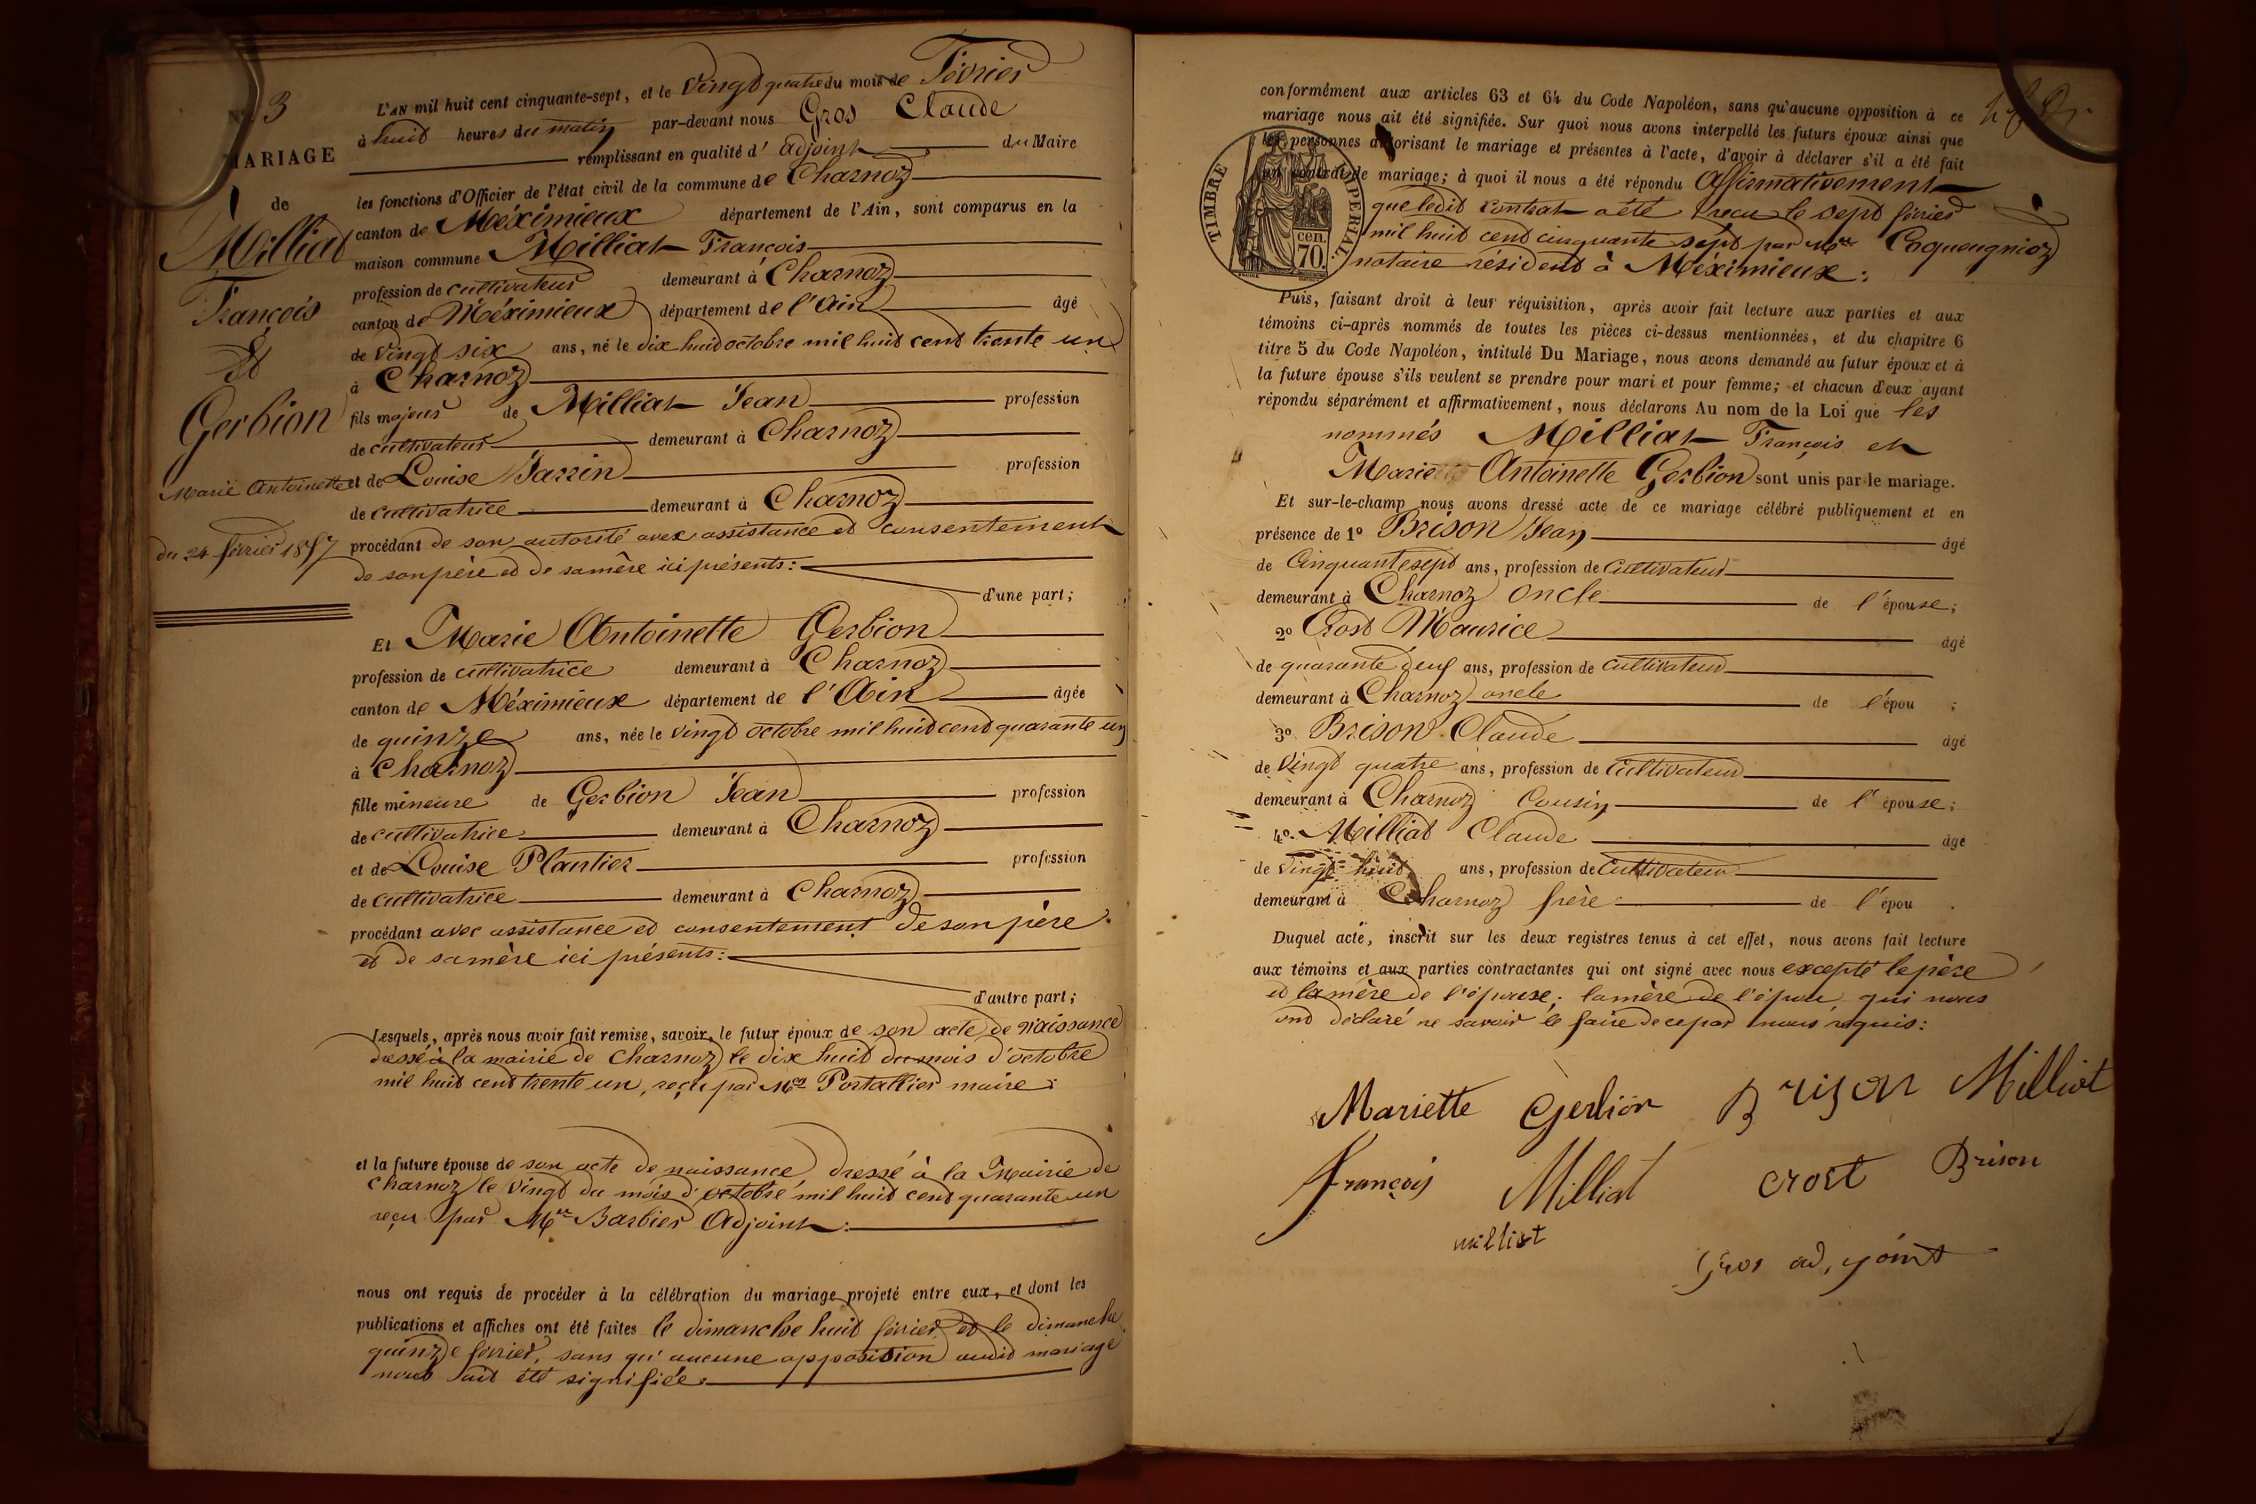 N° 3
MARIAGE
de
Milliat
François
Et
Gerbion
Marie Antoinette
du 24 février 1857
L'AN mil huit cent cinquante-sept, et le Vingt quatre du mois de Février
à huit heures du matin par-devant nous Gros Claude
remplissant en qualité d' adjoint du Maire
les fonctions d'Officier de l'état civil de la commune de Charnoz
canton de Méximieux département de l'Ain, sont comparus en la
maison commune Milliat François
profession de cultivateur demeurant à Charnoz
canton de Méximieux département de l'Ain âgé
de Vingt six ans, né le dix huit octobre mil huit cent trente un
à Charnoz
fils majeur de Milliat Jean profession
de cultivateur demeurant à Charnoz
et de Louise Jarrin profession
de cultivatrice demeurant à Charnoz
procédant de son autorité avec assistance et consentement
de son père et de sa mère ici présents :
d'une part ;
Et Marie Antoinette Gerbion
profession de cultivatrice demeurant à Charnoz
canton de Méximieux département de l'Ain âgée
de quinze ans, née le vingt octobre mil huit cent quarante un
à Charnoz
fille mineure de Gerbion Jean profession
de cultivatrice demeurant à Charnoz
et de Louise Plantier profession
de cultivatrice demeurant à Charnoz
procédant avec assistance et consentement de son père
et de sa mère ici présents :
d'autre part ;
Lesquels, après nous avoir fait remise, savoir, le futur époux de son acte de naissance
dressé à la mairie de Charnoz le dix huit du mois d'octobre
mil huit cent trente un, reçu par Mr Portallier maire :
et la future épouse de son acte de naissance dressé à la Mairie de
Charnoz le vingt du mois d'octobre mil huit cent quarante un
reçu par Mr Barbier Adjoint :
nous ont requis de procéder à la célébration du mariage projeté entre eux, et dont les
publications et affiches ont été faites le dimanche huit février et le dimanche
quinze février, sans qu'aucune opposition audit mariage
nous ait été signifiée
conformément aux articles 63 et 64 du Code Napoléon, sans qu'aucune opposition à ce
mariage nous ait été signifiée. Sur quoi nous avons interpellé les futurs époux ainsi que
les personnes autorisant le mariage et présentes à l'acte, d'avoir à déclarer s'il a été fait
un contrat de mariage ; à quoi il nous a été répondu Affirmativement
que ledit contrat a été reçu le sept février
mil huit cent cinquante sept par Mtre
notaire résident à Méximieux :
TIMBRE IMPERIAL
cen. 70
Puis, faisant droit à leur réquisition, après avoir fait lecture aux parties et aux
témoins ci-après nommés de toutes les pièces ci-dessus mentionnées, et du chapitre 6
titre 5 du Code Napoléon, intitulé Du Mariage, nous avons demandé au futur époux et à
la future épouse s'ils veulent se prendre pour mari et pour femme ; et chacun d'eux ayant
répondu séparément et affirmativement, nous déclarons Au nom de la Loi que les
nommés Milliat François et
Marie Antoinette Gerbion sont unis par le mariage.
Et sur-le-champ nous avons dressé acte de ce mariage célébré publiquement et en
présence de 1° Brison Jean âgé
de Cinquante sept ans, profession de Cultivateur
demeurant à Charnoz oncle de l'épouse ;
2° Crost Maurice âgé
de quarante deux ans, profession de cultivateur
demeurant à Charnoz oncle de l'épou ;
3° Brison Claude âgé
de Vingt quatre ans, profession de Cultivateur
demeurant à Charnoz Cousin de l'épouse ;
4° Milliat Claude âgé
de Vingt huit ans, profession de Cultivateur
demeurant à Charnoz frère de l'épou .
Duquel acte, inscrit sur les deux registres tenus à cet effet, nous avons fait lecture
aux témoins et aux parties contractantes qui ont signé avec nous excepté le père
et la mère de l'épouse ; la mère de l'époux qui nous
ont déclaré ne savoir le faire de ce par nous requis :
Mariette Gerbion Brison Milliat
François Milliat crost Brison
milliat
Gros ad, joint